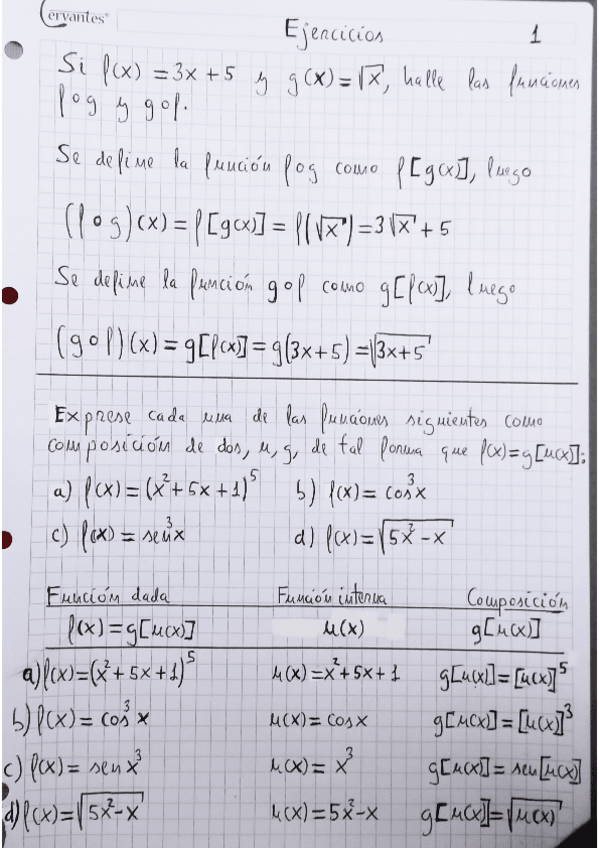 Cervantes®
Ejercicios 1
Si f(x) = 3x + 5 y g(x) = √x, halle las funciones
f∘g y g∘f.
Se define la función f∘g como f[g(x)], luego
(f∘g)(x) = f[g(x)] = f(√x) = 3√x + 5
Se define la función g∘f como g[f(x)], luego
(g∘f)(x) = g[f(x)] = g(3x+5) = √(3x+5)
Exprese cada una de las funciones siguientes como
composición de dos, u, g, de tal forma que f(x)=g[u(x)]:
a) f(x) = (x²+5x+1)⁵ b) f(x) = cos³x
c) f(x) = sen³x d) f(x) = √(5x²-x)
Función dada Función interna Composición
f(x) = g[u(x)] u(x) g[u(x)]
a) f(x)=(x²+5x+1)⁵ u(x)=x²+5x+1 g[u(x)]=[u(x)]⁵
b) f(x) = cos³x u(x) = cosx g[u(x)] = [u(x)]³
c) f(x) = sen x³ u(x) = x³ g[u(x)] = sen[u(x)]
d) f(x)=√(5x²-x) u(x)=5x²-x g[u(x)]=√u(x)